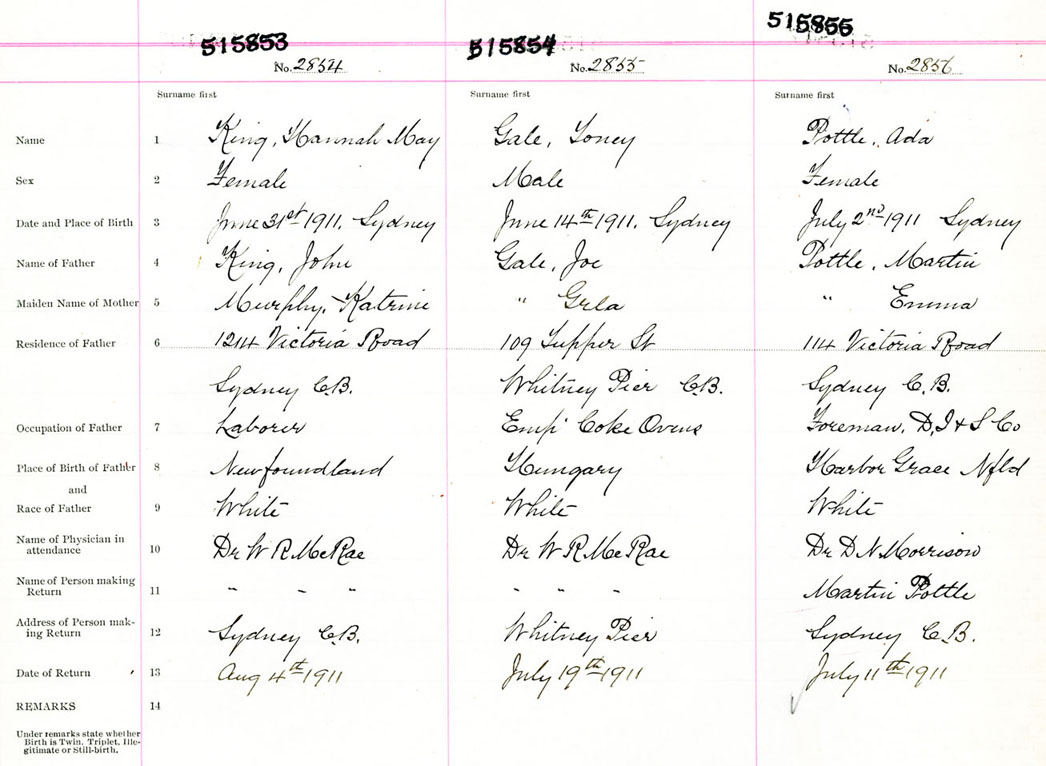 515853 515854 515855
No. 2854 No. 2855 No. 2856
Surname first Surname first Surname first
Name 1 King, Hannah May Gale, Toney Pottle, Ada
Sex 2 Female Male Female
Date and Place of Birth 3 June 31st 1911. Sydney June 14th 1911. Sydney July 2nd 1911 Sydney
Name of Father 4 King, John Gale, Joe Pottle, Martin
Maiden Name of Mother 5 Murphy, Katrine " Grla " Emma
Residence of Father 6 1214 Victoria Road 109 Tupper St 114 Victoria Road
Sydney C.B. Whitney Pier C.B. Sydney C.B.
Occupation of Father 7 Laborer Emp Coke Ovens Foreman, D, I & S Co
Place of Birth of Father 8 Newfoundland Hungary Harbor Grace Nfld
and
Race of Father 9 White White White
Name of Physician in
attendance 10 Dr W R McRae Dr W R McRae Dr D N Morrison
Name of Person making
Return 11 " " " " " " Martin Pottle
Address of Person mak-
ing Return 12 Sydney C.B. Whitney Pier Sydney C.B.
Date of Return 13 Aug 4th 1911 July 19th 1911 July 11th 1911
REMARKS 14
Under remarks state whether
Birth is Twin, Triplet, Ille-
gitimate or Still-birth.